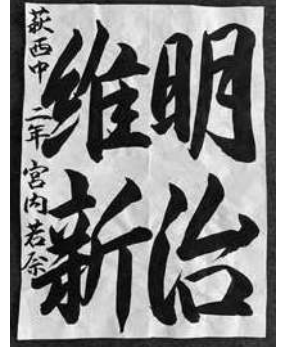 明治
維新
萩西中 二年 宮内若奈